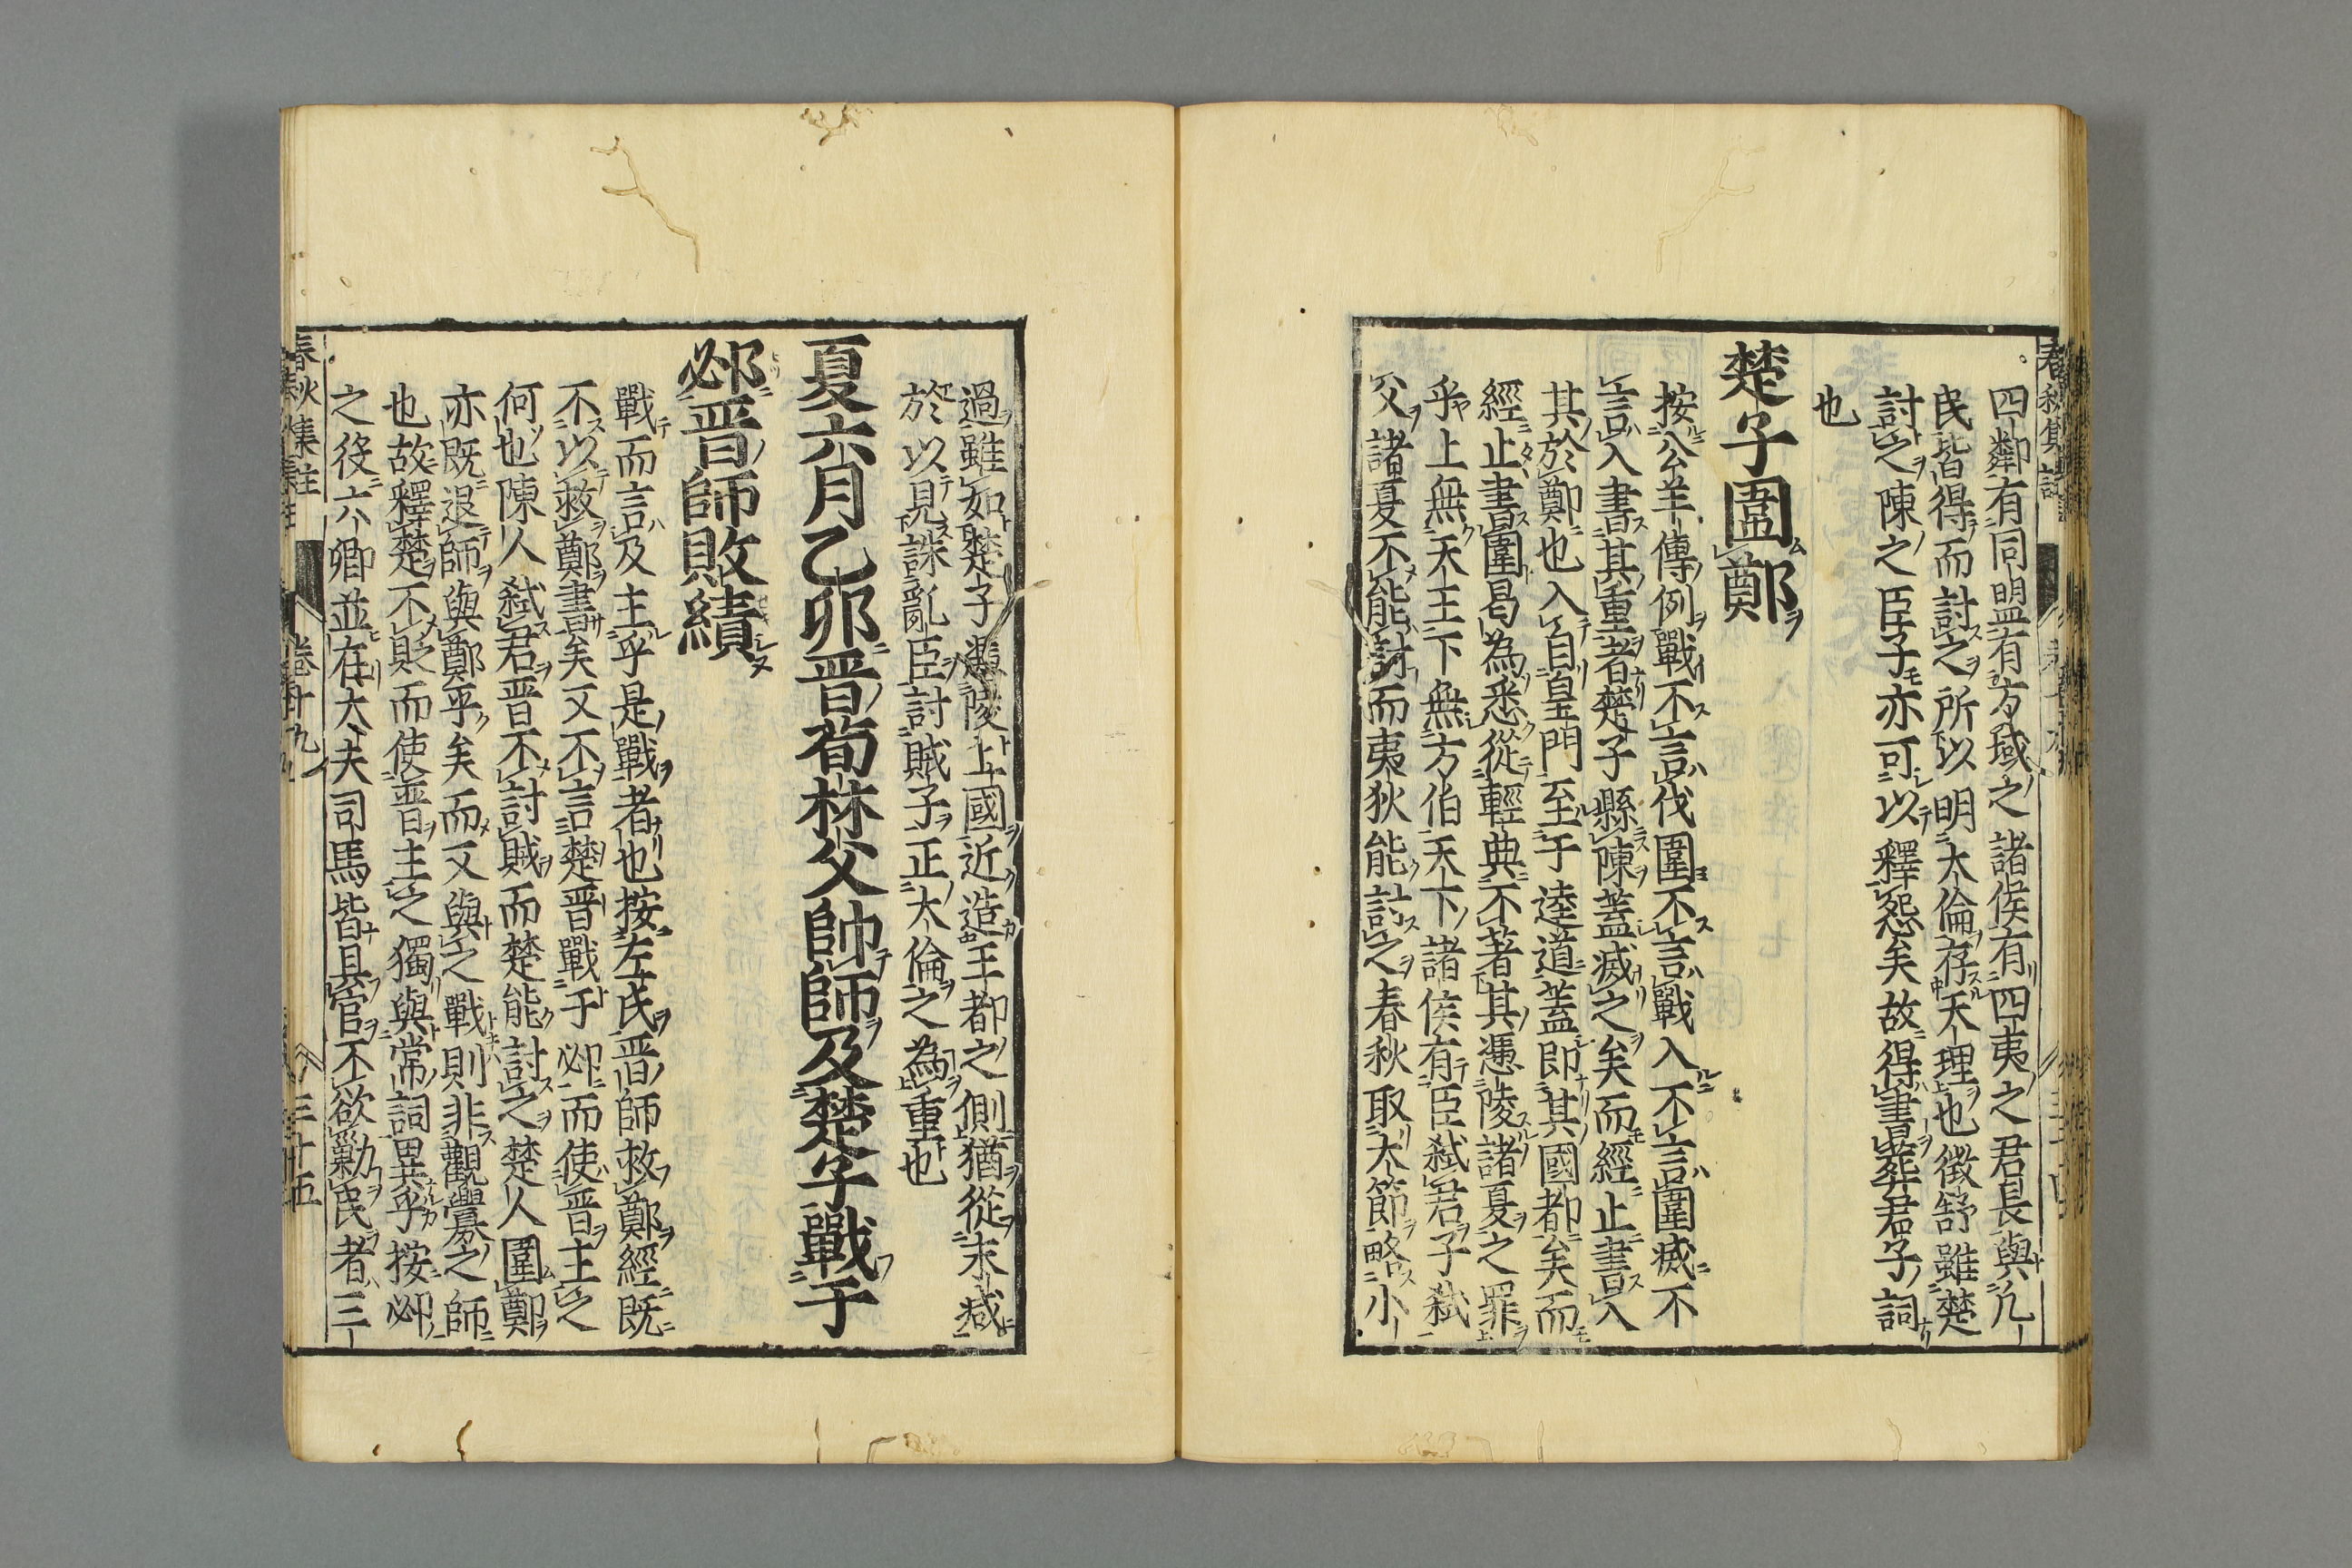 四鄰有同盟有方域之諸侯有四夷之君長與凡
民皆得而討之所以明大倫存天理也徵舒雖楚
討之陳之臣子亦可以釋怨矣故得書葬君子詞
也
楚子圍鄭
按公羊傳例戰不言伐圍不言戰入不言圍滅不
言入書其重者楚子縣陳蓋滅之矣而經止書入
其於鄭也入自皇門至于逵道蓋即其國都矣而
經止書圍曷為悉從輕典不著其憑陵諸夏之罪
乎上無天王下無方伯天下諸侯有臣弑君子弑
父諸夏不能討而夷狄能討之春秋取大節略小
過雖如楚子憑陵上國近造王都之側猶從末減
於以見誅亂臣討賊子正大倫之為重也
夏六月乙卯晋荀林父帥師及楚子戰于
邲晋師敗績
戰而言及主乎是戰者也按左氏晋師救鄭經既
不以救鄭書矣又不言楚晋戰于邲而使晋主之
何也陳人弑君晋不討賊而楚能討之楚人圍鄭
亦既退師與鄭平矣而又與之戰則非觀釁之師
也故釋楚不貶而使晋主之獨與常詞異乎按邲
之役六卿並在大夫司馬皆具官不欲勦民者三
春秋集註
卷十九
三十五